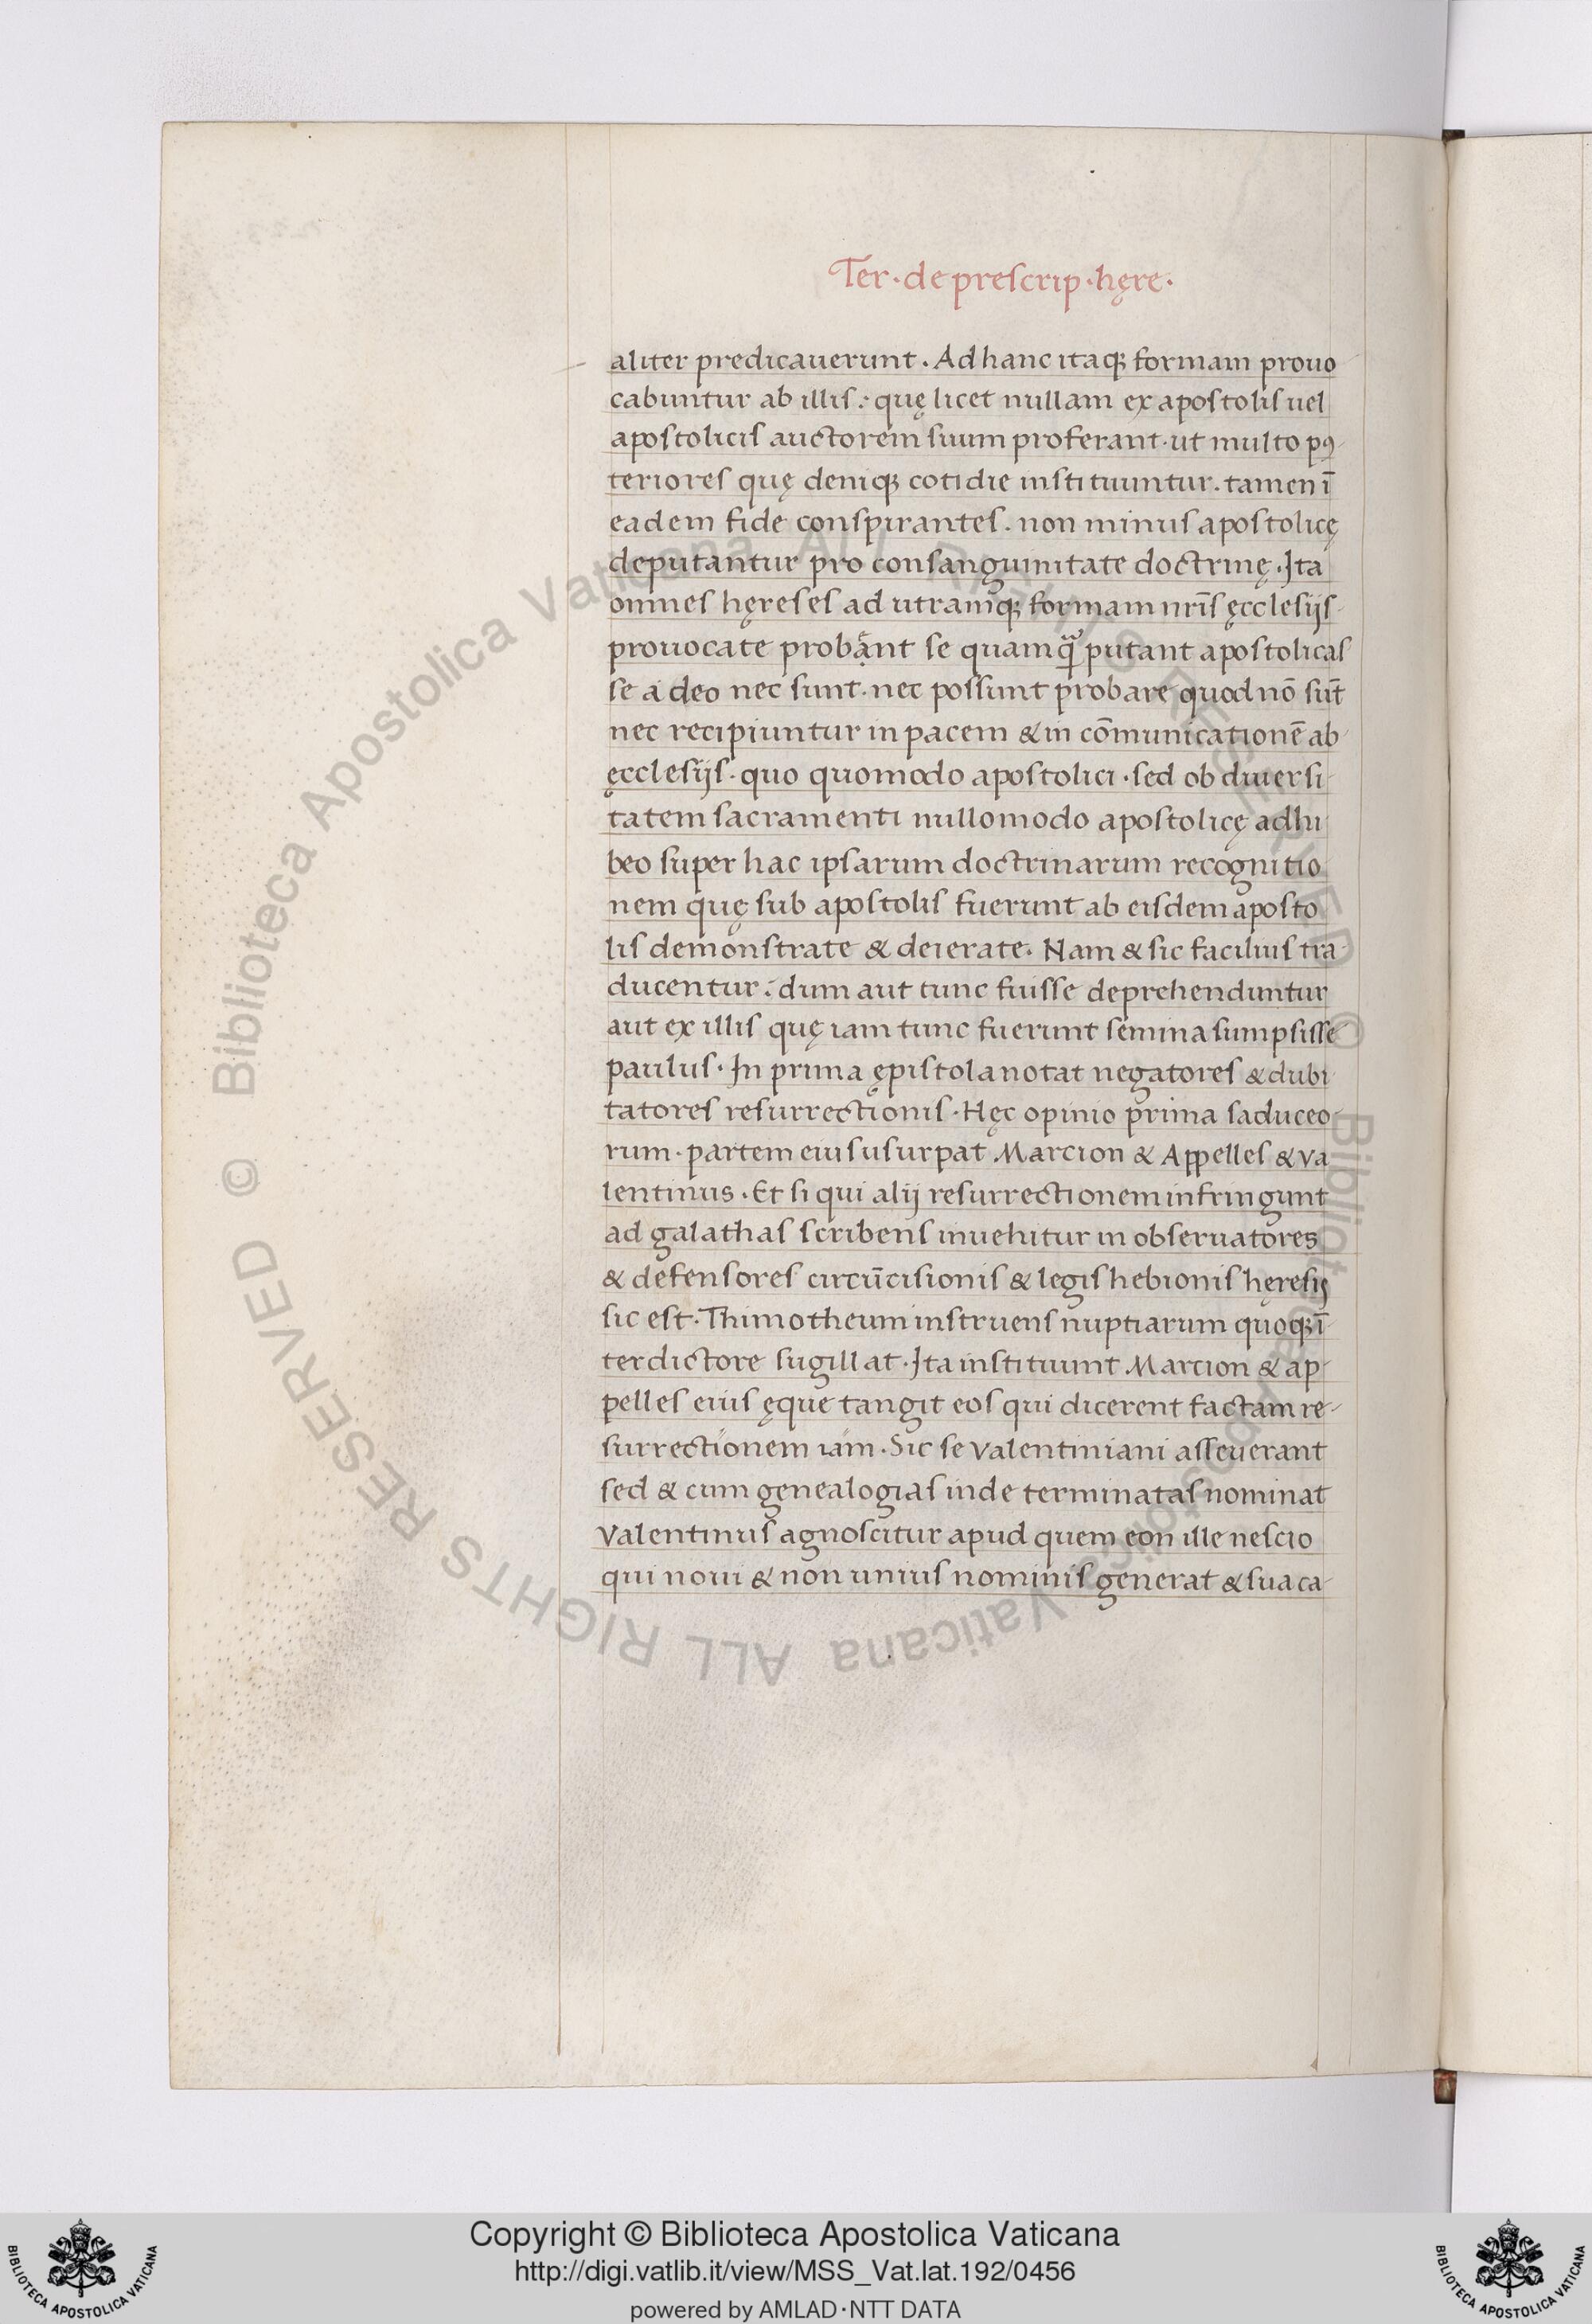 Ter · de prescrip · hęre ·
aliter predicauerunt . Ad hanc itaq; formam prouo
cabuntur ab illis : quę licet nullam ex apostolis uel
apostolicis auctorem suum proferant · ut multo pꝰ-
teriores quę deniq; cotidie instituuntur . tamen ī
eadem fide conspirantes . non minus apostolicę
deputantur pro consanguinitate doctrinę . Ita
omnes hęreses ad utramq; formam nr̄is ęcclesijs-
prouocate probạent se quamq̃ putant apostolicas
se a deo nec sunt · nec possunt probare quod nō sūt
nec recipiuntur in pacem & in cōmunicationē ab
ęcclesijs · quo quomodo apostolici · sed ob diuersi-
tatem sacramenti nullomodo apostolicę adhi
beo super hac ipsarum doctrinarum recognitio
nem quę sub apostolis fuerunt ab eisdem aposto
lis demonstrate & deierate . Nam & sic facilius tra-
ducentur : dum aut tunc fuisse deprehenduntur
aut ex illis quę iam tunc fuerunt semina sumpsisse
paulus · In prima ępistola notat negatores & dubi-
tatores resurrectionis · Hęc opinio prima saduceo-
rum · partem eius usurpat Marcion & Appelles & va
lentinus · Et si qui alij resurrectionem infringunt
ad galathas scribens inuehitur in obseruatores
& defensores circūcisionis & legis hebionis hęresis
sic est · Thimotheum instruens nuptiarum quoq; ī-
terdictore sugillat · Ita instituunt Marcion & ap-
pelles eius ęque tangit eos qui dicerent factam re-
surrectionem iam · Sic se valentiniani asseuerant
sed & cum genealogias inde terminatas nominat
Valentinus agnoscitur apud quem eon ille nescio
qui noui & non unius nominis generat & sua ca-
© Biblioteca Apostolica Vaticana ALL RIGHTS RESERVED © Biblioteca Apostolica Vaticana ALL RIGHTS RESERVED
BIBLIOTECA APOSTOLICA VATICANA
Copyright © Biblioteca Apostolica Vaticana
http://digi.vatlib.it/view/MSS_Vat.lat.192/0456
powered by AMLAD·NTT DATA
BIBLIOTECA APOSTOLICA VATICANA